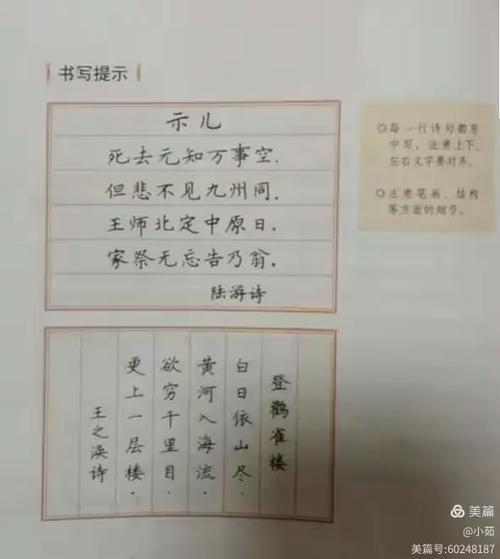 书写提示
示儿
死去元知万事空,
但悲不见九州同。
王师北定中原日,
家祭无忘告乃翁。
陆游诗
○每一行诗句都要
中写,注意上下、
左右文字要对齐。
○注意笔画、结构
等方面的细节。
登鹳雀楼
白日依山尽,
黄河入海流。
欲穷千里目,
更上一层楼。
王之涣诗
美篇
@小茹
美篇号:60248187